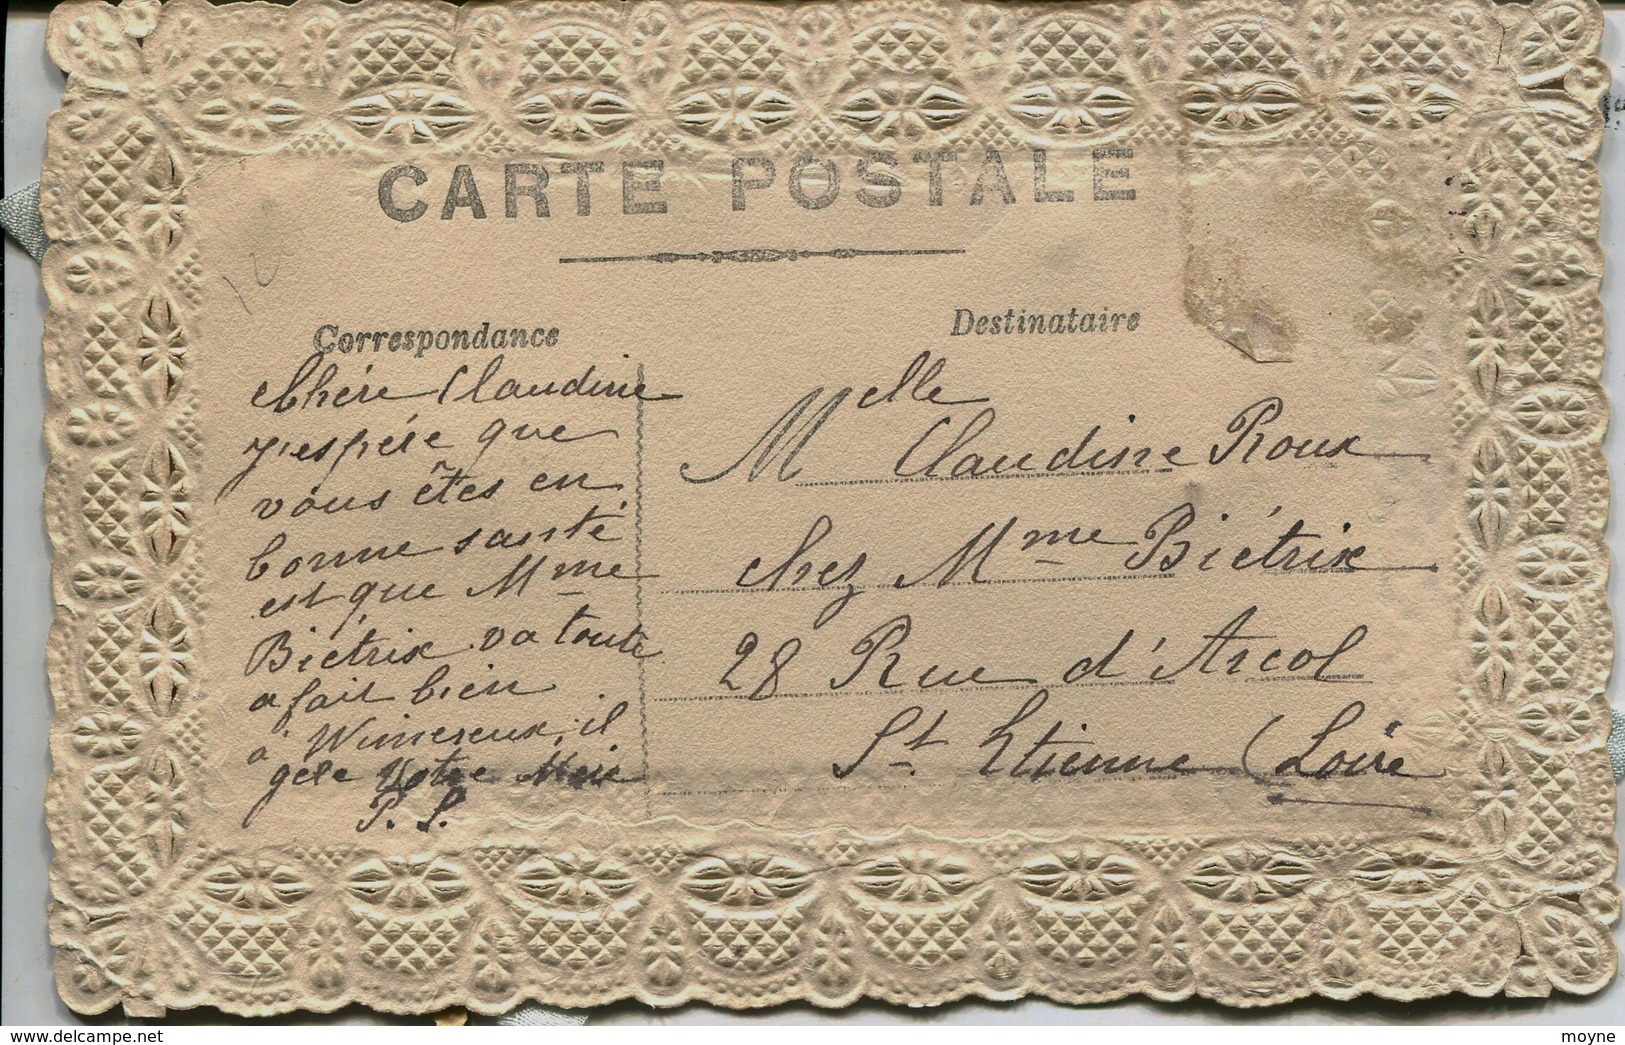 CARTE POSTALE
Correspondance
Chère Claudine
J'espére que
vous êtes en
bonne santé
est que Mme
Biétrix va toute
a fait bien
à Wimereux, il
gèle Votre
P. S.
Destinataire
Melle Claudine Roux
chez Mme Biétrix
28 Rue d'Arcol
St. Etienne (Loire
delcampe.net
moyne